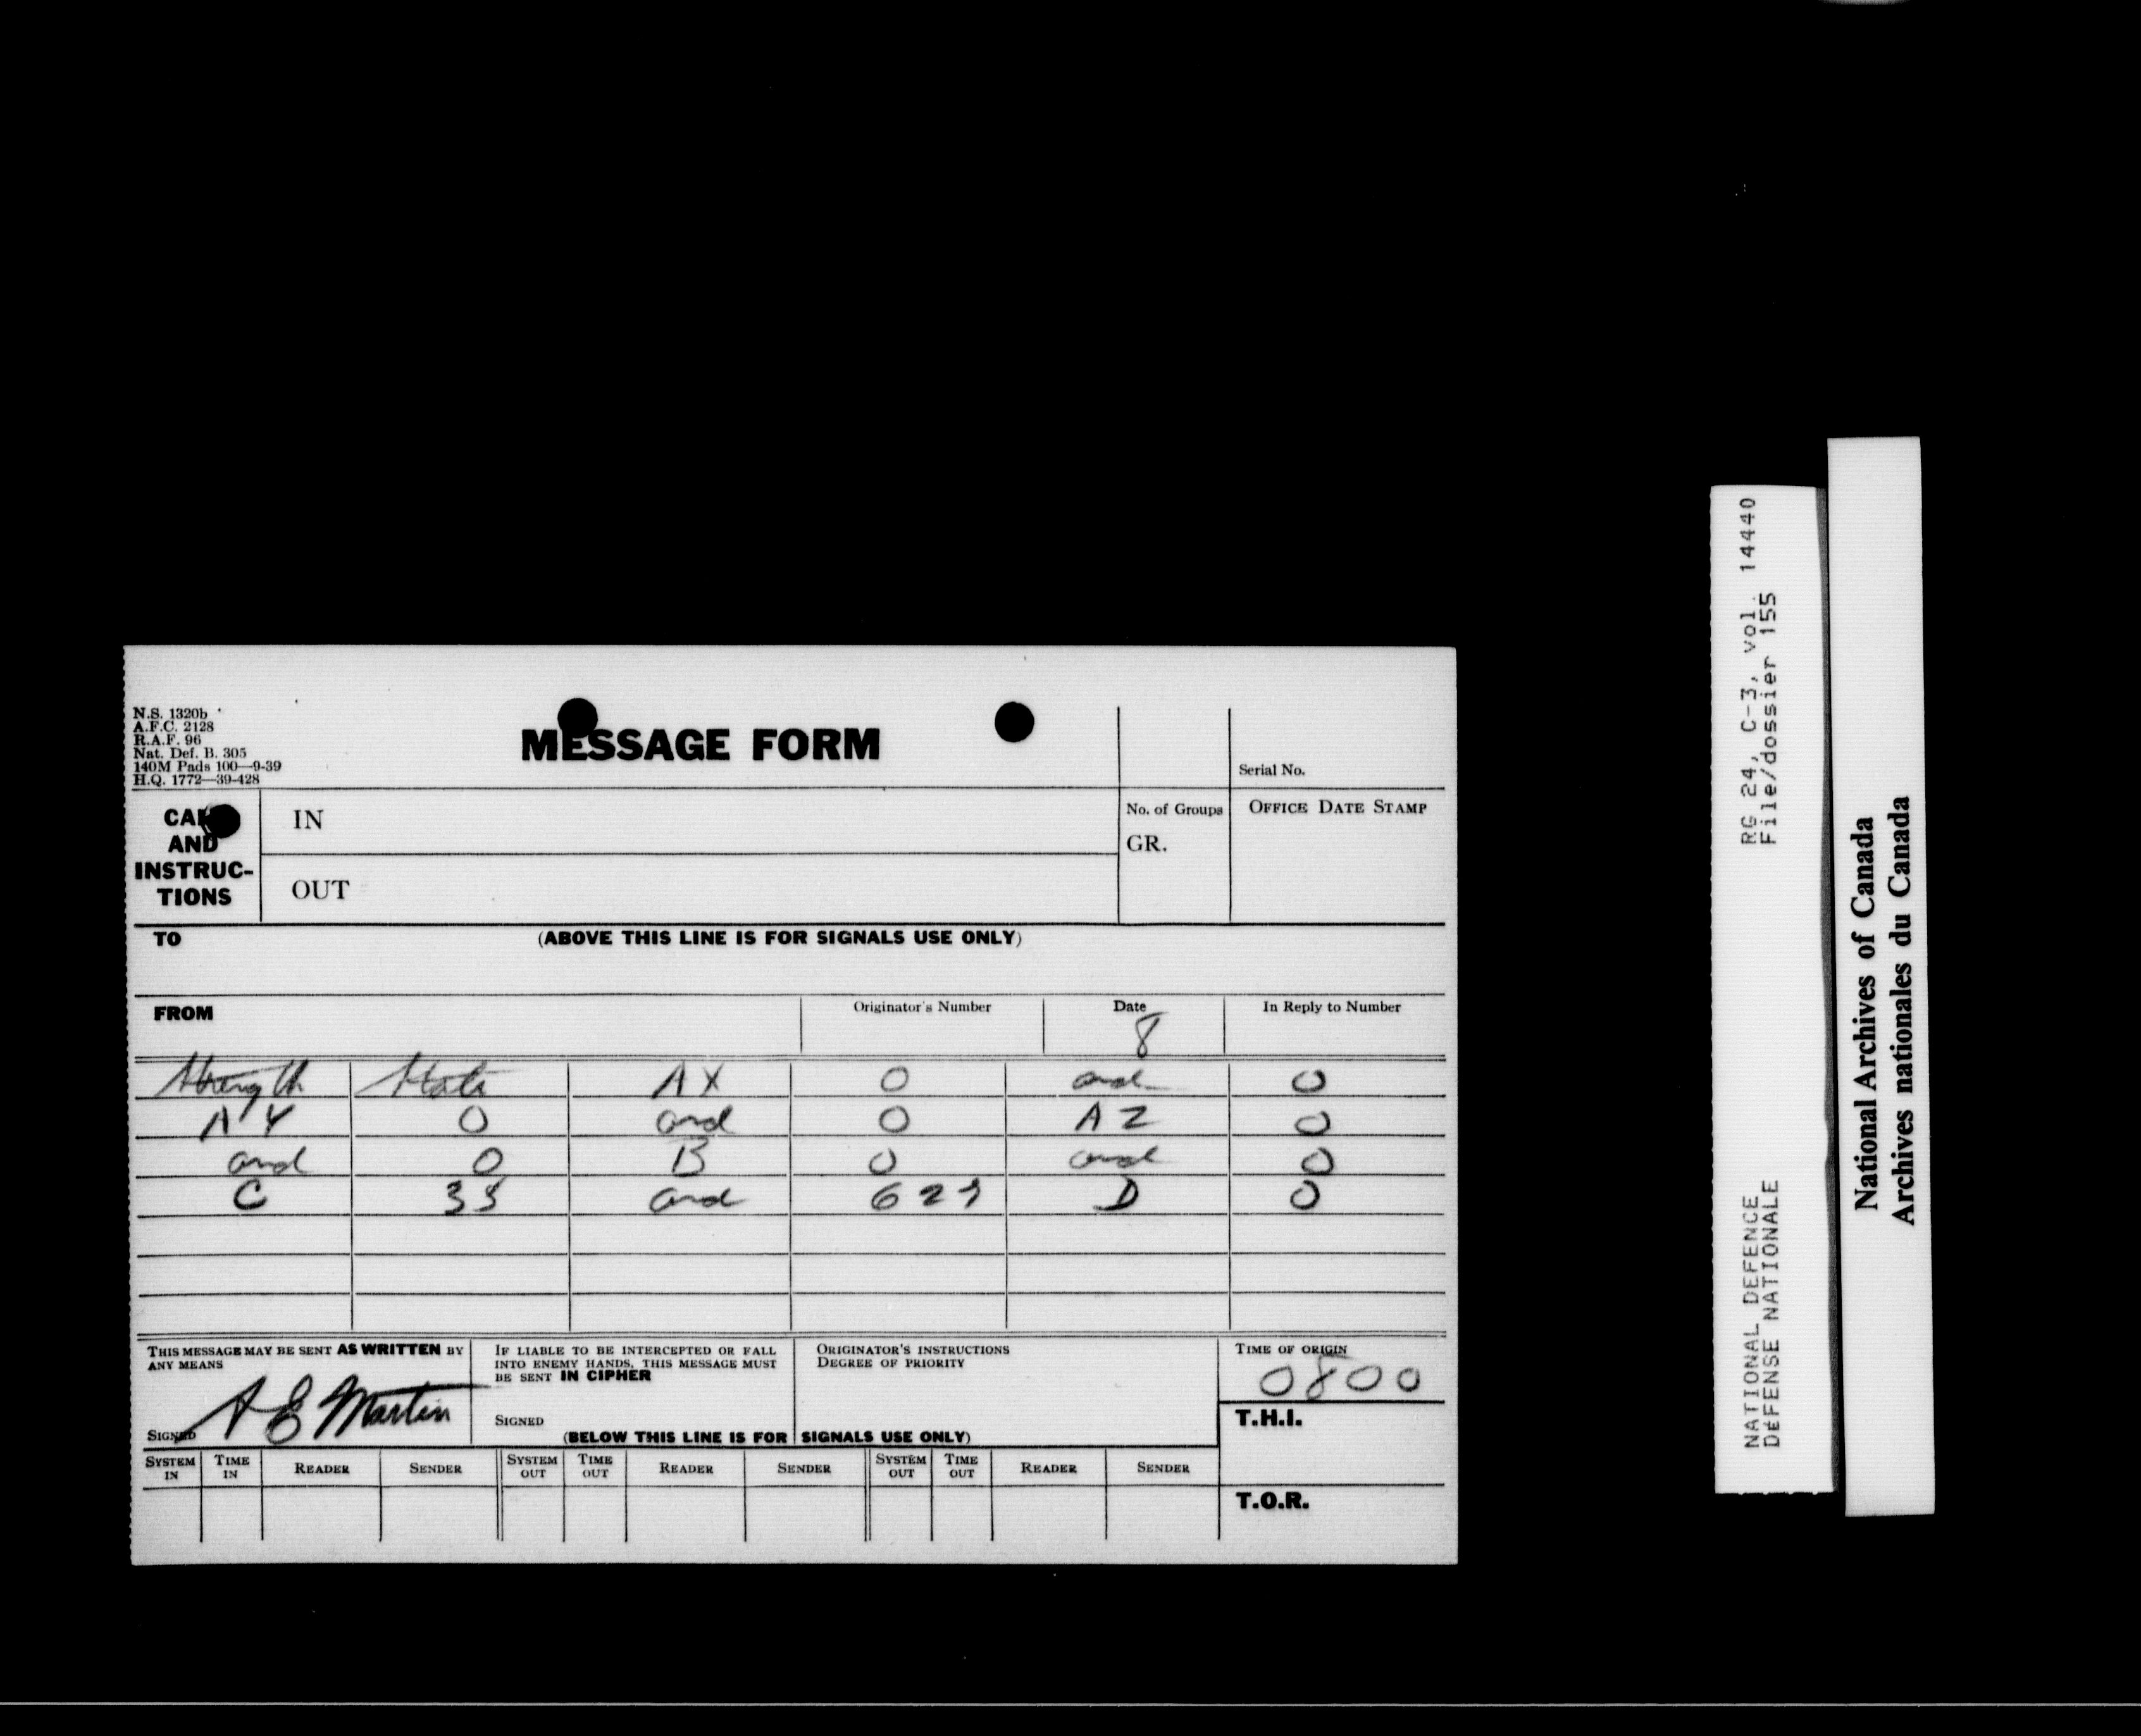 N.S. 1320b
A.F.C. 2128
R.A.F. 96
Nat. Def. B. 305
140M Pads 100—9-39
H.Q. 1772—39-428
MESSAGE FORM
Serial No.
CALL
AND
INSTRUC-
TIONS
IN
OUT
No. of Groups
GR.
OFFICE DATE STAMP
TO
(ABOVE THIS LINE IS FOR SIGNALS USE ONLY)
FROM
Originator's Number
Date
8
In Reply to Number
Strength State AX 0 and 0
AY 0 and 0 AZ 0
and 0 B 0 and 0
C 35 and D 0
THIS MESSAGE MAY BE SENT AS WRITTEN BY
ANY MEANS
A E Martin
SIGNED
IF LIABLE TO BE INTERCEPTED OR FALL
INTO ENEMY HANDS, THIS MESSAGE MUST
BE SENT IN CIPHER
SIGNED
ORIGINATOR'S INSTRUCTIONS
DEGREE OF PRIORITY
(BELOW THIS LINE IS FOR SIGNALS USE ONLY)
TIME OF ORIGIN
0800
T.H.I.
T.O.R.
SYSTEM IN TIME IN READER SENDER SYSTEM OUT TIME OUT READER SENDER SYSTEM OUT TIME OUT READER SENDER
RG 24, C-3, vol. 14440
File/dossier 155
NATIONAL DEFENCE
DÉFENSE NATIONALE
National Archives of Canada
Archives nationales du Canada